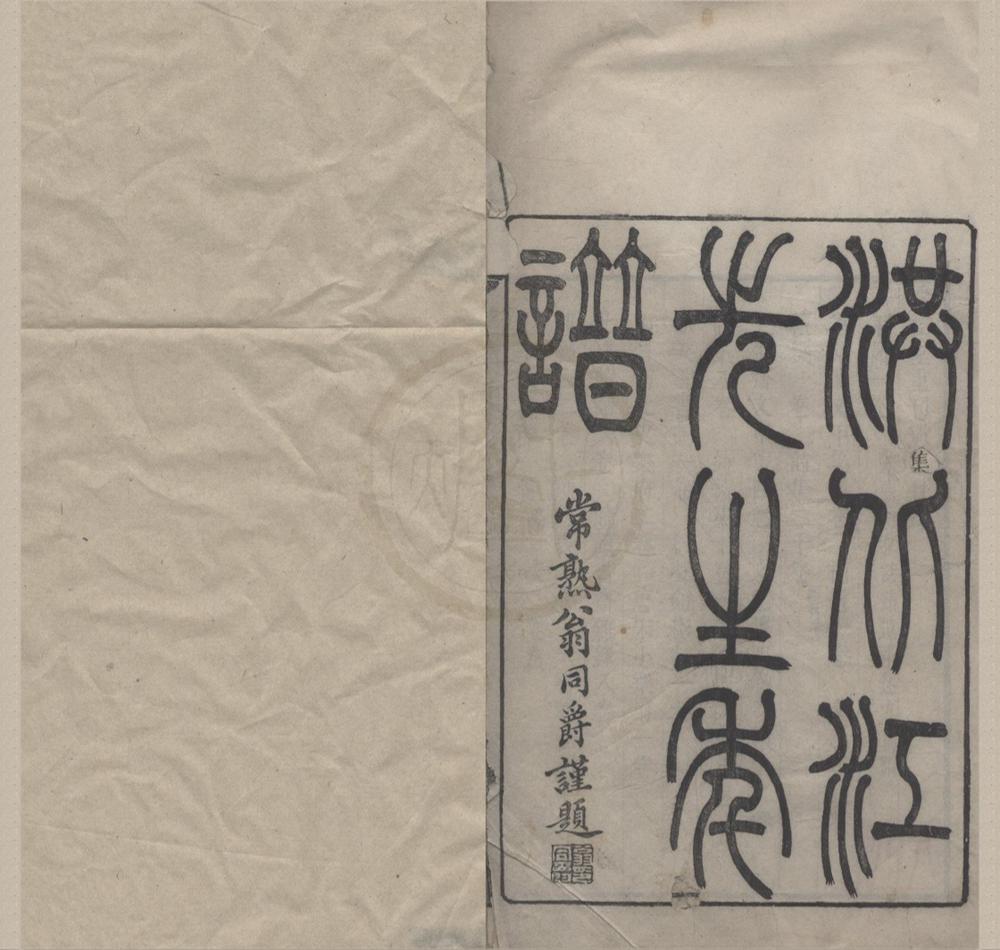 洪北江
先生年
譜
常熟翁同爵謹題
集